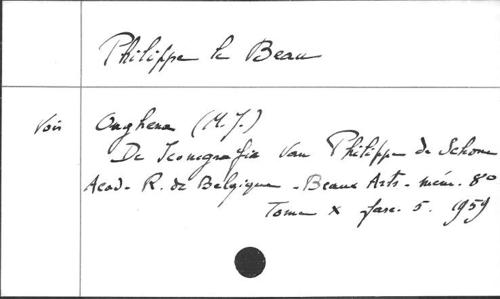 Philippe le Beau
Voir Onghena (M.J.)
De Iconografie van Philippe de Schone
Acad. R. de Belgique - Beaux Arts - mém. 8°
Tome X fasc. 5. 1959